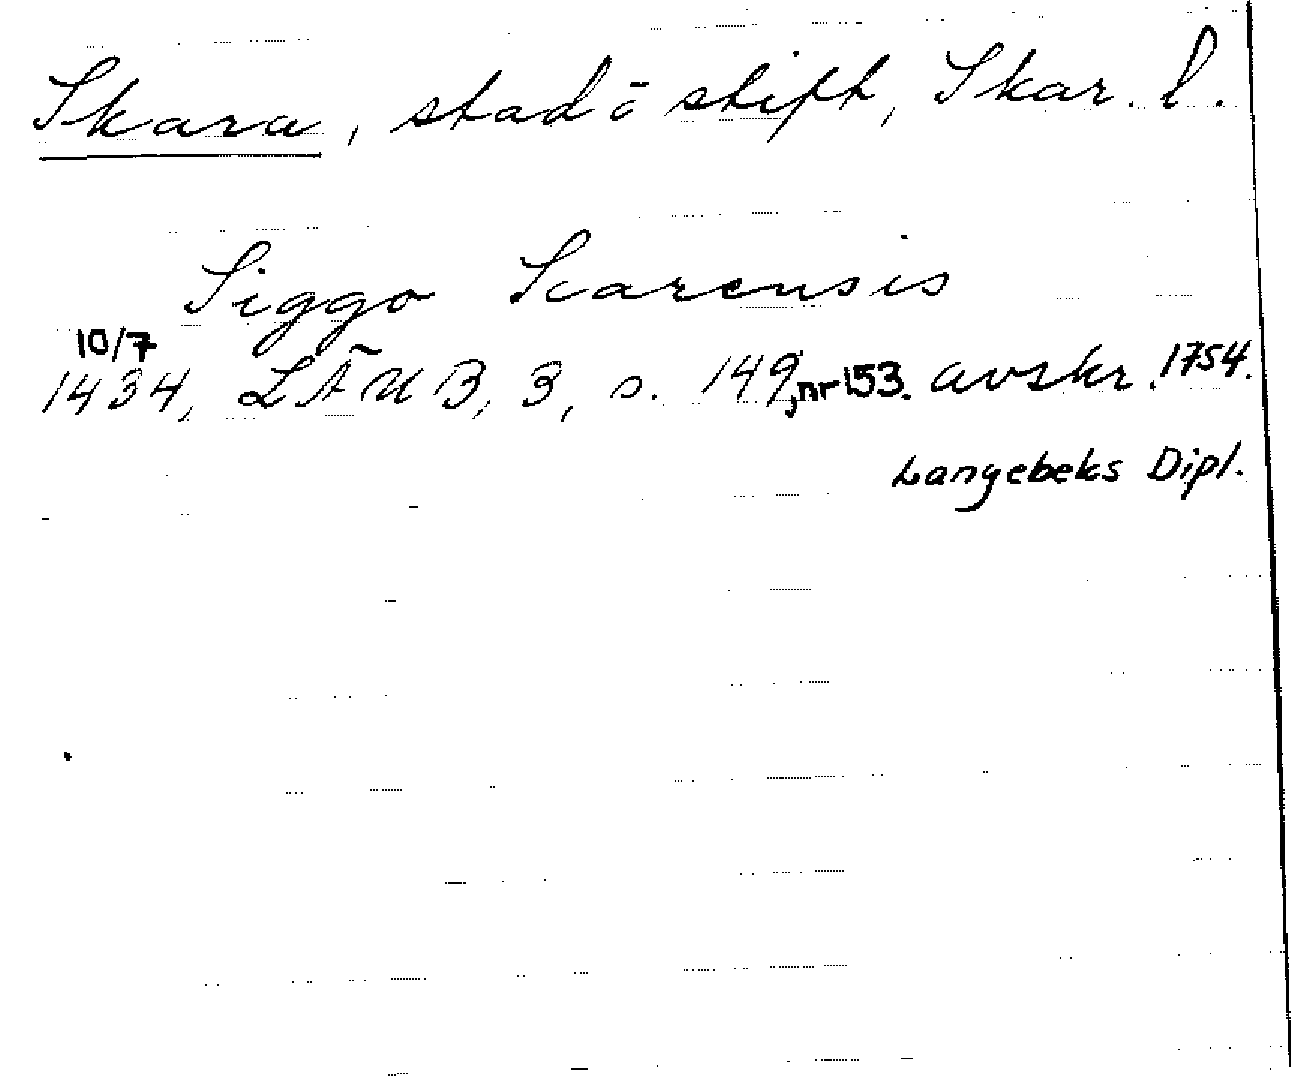 Skara, stad o stift, Skar. l.
Siggo Scarensis
10/7
1434, LÄUB, 3, s. 149, nr 153. avskr. 1754.
Langebeks Dipl.